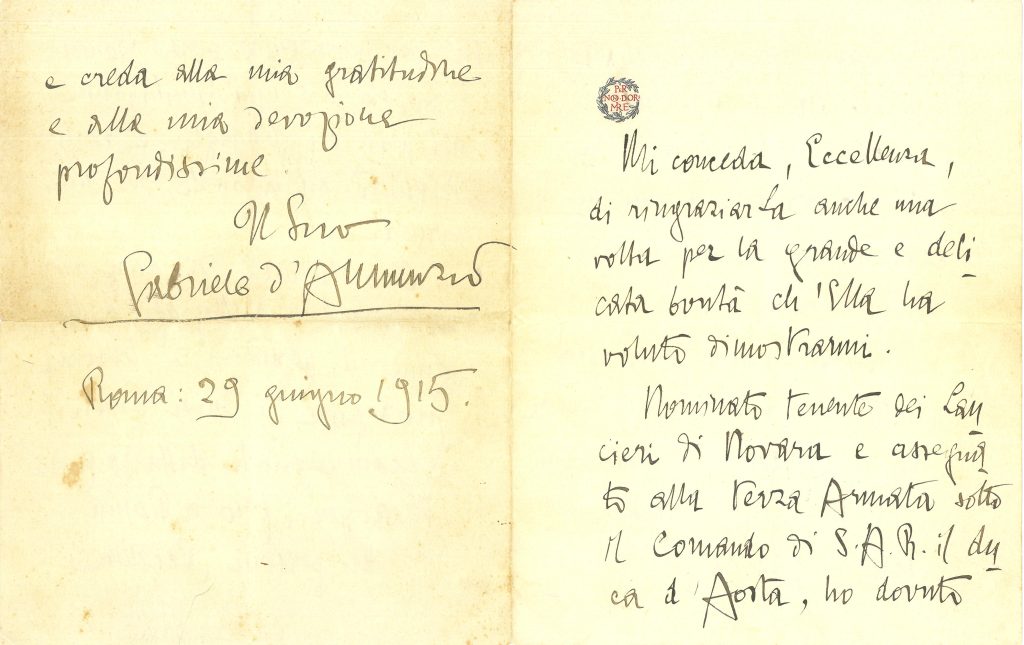 e creda alla mia gratitudine
e alla mia devozione
profondissime.
Il Suo
Gabriele d'Annunzio
Roma: 29 giugno 1915.
PER
NON DOR
MIRE
Mi conceda, Eccellenza,
di ringraziarLa anche una
volta per la grande e deli
cata bontà ch'Ella ha
voluto dimostrarmi.
Nominato tenente dei Lan
cieri di Novara e assegna
to alla terza Armata sotto
il Comando di S.A.R. il du
ca d'Aosta, ho dovuto